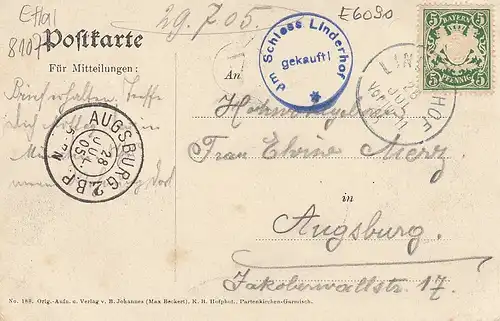 Ettal
8107
29.7.05.
E6090
Postkarte
Für Mitteilungen:
Im Schloss Linderhof
gekauft!
BAYERN
5 5
5 PFENNIG 5
LINDERHOF
28
JUL
An
Brief erhalten. Treffe
AUGSBURG 2.B.P.
28
JUL.
05
N
Hochwohlgeboren
Frau Elvine Merz
in
Augsburg.
Jakoberwallstr. 17.
No. 188. Orig.-Aufn. u. Verlag v. B. Johannes (Max Beckert), K. B. Hofphot., Partenkirchen-Garmisch.